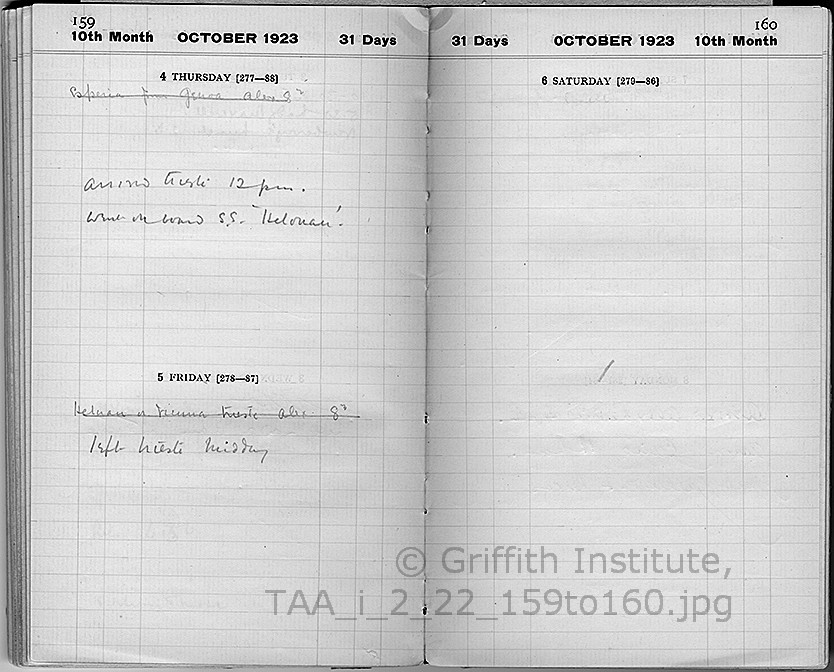 159
10th Month OCTOBER 1923 31 Days
4 THURSDAY [277—88]
Esperia from Genoa Alex 8th
arrived Trieste 12 pm.
went on board S.S. 'Helouan'.
5 FRIDAY [278—87]
Helouan or Vienna Trieste Alex 8th
left Trieste Midday
160
31 Days OCTOBER 1923 10th Month
6 SATURDAY [279—86]
© Griffith Institute,
TAA_i_2_22_159to160.jpg